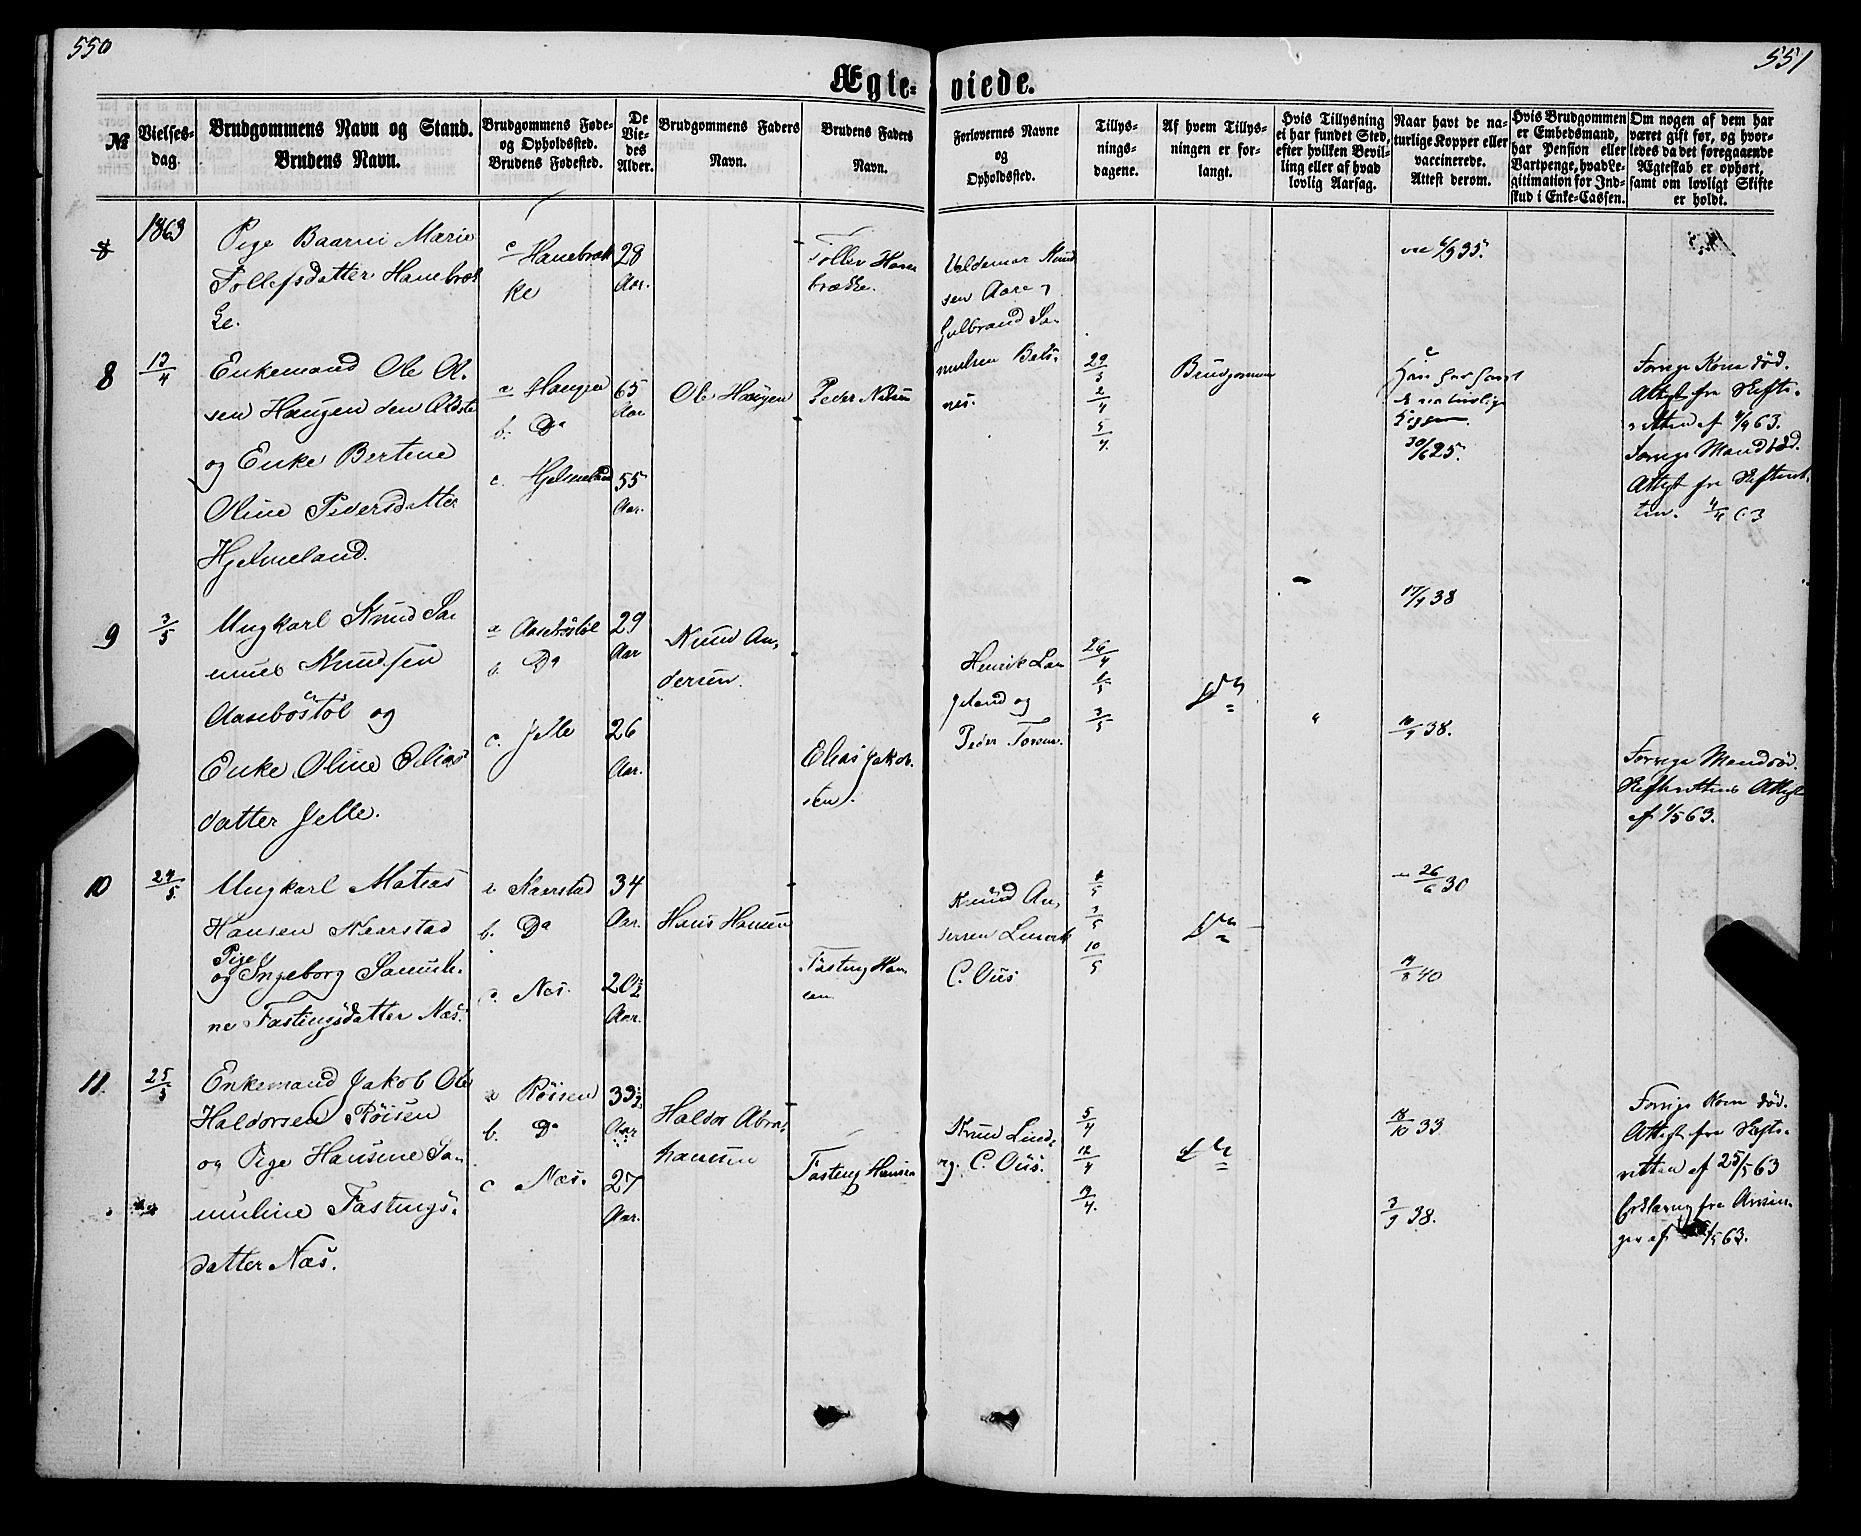 550
551
Ægte-
viede.
№
Vielses-
dag.
Brudgommens Navn og Stand.
Brudens Navn.
Brudgommens Føde-
og Opholdssted.
Brudens Fødested.
De
Vie-
des
Alder.
Brudgommens Faders
Navn.
Brudens Faders
Navn.
Forlovernes Navne
og
Opholdssted.
Tillys-
nings-
dagene.
Af hvem Tillys-
ningen er for-
langt.
Hvis Tillysning
ei har fundet Sted,
efter hvilken Bevil-
ling eller af hvad
lovlig Aarsag.
Naar havt de na-
turlige Kopper eller
vaccinerede.
Attest derom.
Hvis Brudgommen
er Embedsmand,
har Pension eller
Vartpenge, hvad Le-
gitimation for Ind-
skud i Enke-Cassen.
Om nogen af dem har
været gift før, og hvor-
ledes da det foregaaende
Ægteskab er ophørt,
samt om lovligt Skifte
er holdt.
1863
Pige Baarni Marie
Tollefsdatter Hanebræk
ke.
c Hanebræk
ke
28
Aar.
Tollev Hane
brække.
Valdemar Knud
sen Aare,
Gulbrand Sa-
muelsen Bals-
nes.
8
13/4
Enkemand Ole Ol-
sen Haugen den Ældste
og Enke Bertene
Oline Pedersdatter
Hjelmeland.
a Haugen
b. Do
c. Hjelmeland
65
Aar
55
Aar.
Ole Haugen
Peder Nilsen
29/3
2/4
5/4
Brudgommen
30/6 25.
Forrige Kone død.
Attest fra Skifte-
retten af 4/4 63.
Forrige Mand død.
Attest fra Skifteret-
ten. 4/4 63
9
3/5
Ungkarl Knud Ra
Knudsen
Aasebøstøl og
Enke Oline Elias
datter Jelle.
a Aasebøstøl
b. Do
c. Jelle
29
Aar
26
Aar.
Knud An-
dersen.
Elias Jakob-
sen.
Henrik Lan
geland og
Peder
26/4
1/5
3/5
Do
"
17/9 38
10/9 38.
Forrige Mand død.
Skifterettens Attest
af 1/5 63.
10
24/5
Ungkarl Matias
Hansen Naarstad
Pige
og Ingeborg Samueli-
ne Fastingsdatter Næs.
a Naarstad
b. Do
c. Næs.
34
Aar.
20½
Aar.
Hans Hansen
Fasting Han-
sen
Knud An-
dersen
C. Ous
1/5
3/5
10/5
Do
26/6 30
19/8 40
11
25/5
Enkemand Jakob Ole
Haldorsen Røisen
og Pige Hansine Sa-
muline Fastings-
datter Næs.
a Røisen
b. Do
c Næs.
33½
Aar
27
Aar.
Haldor Abra-
hamsen
Fasting Hansen
Knud Lind-
og C. Ous.
5/4
12/4
19/4.
Do
18/10 33
3/9 38.
Forrige Kone død.
Attest fra Skifte-
retten af 25/5 63
Erklæring fra Arvin-
ger af /5 63.